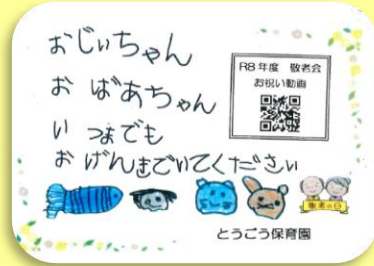 おじぃちゃん
おばあちゃん
いつまでも
おげんきでいてください
R8年度 敬老会
お祝い動画
敬老の日
とうごう保育園